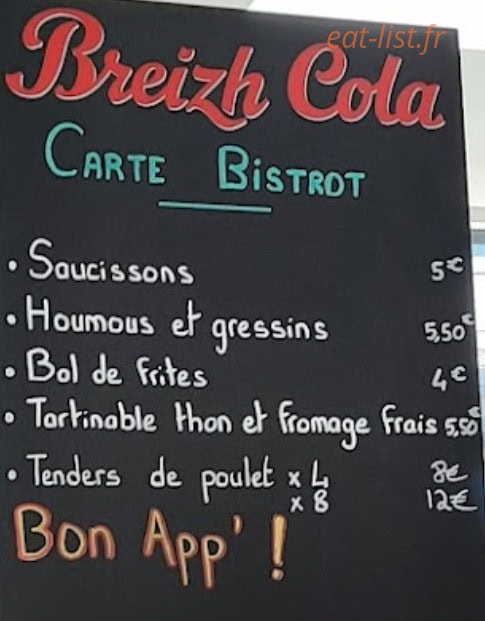 eat-list.fr
Breizh Cola
CARTE BISTROT
• Saucissons 5€
• Houmous et gressins 5,50€
• Bol de frites 4€
• Tartinable thon et fromage frais 5,50€
• Tenders de poulet x 4 8€
x 8 12€
Bon App' !